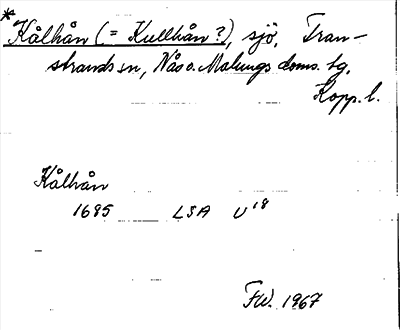 * Kålhån (= Kullhån?), sjö, Tran-
strands sn, Nås o. Malungs doms. tg,
Kopp. l.
Kålhån
1695 LSA U18
FW. 1967